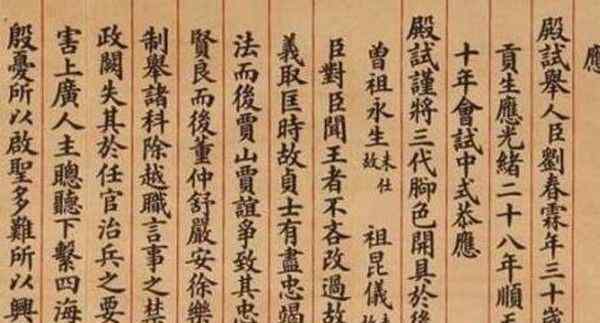 應
殿試舉人臣劉春霖年三十歲
貢生應光緒二十八年順天
十年會試中式恭應
殿試謹將三代腳色開具於後
曾祖永生未仕故 祖昆儀未故
臣對臣聞王者不吝改過故
義取匡時故貞士有盡忠竭
法而後賈山賈誼爭致其忠
賢良而後董仲舒嚴安徐樂
制舉諸科除越職言事之禁
政闕失其於任官治兵之要
害上廣人主聰聽下繫四海
殷憂所以啟聖多難所以興